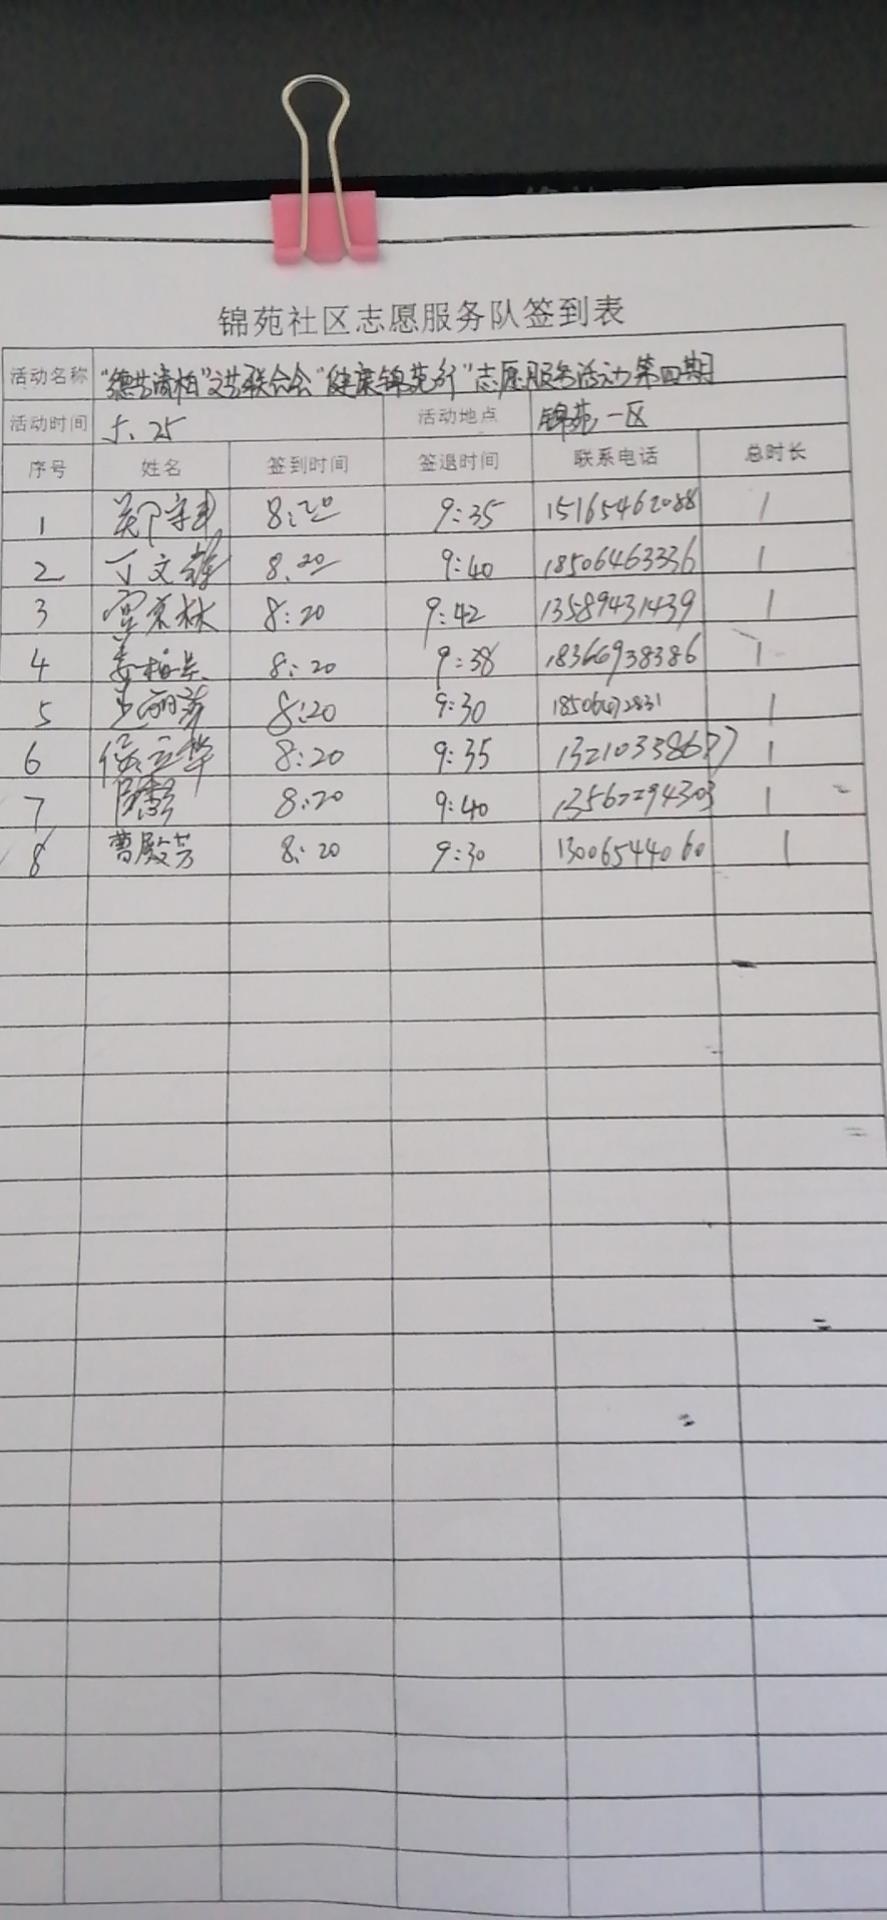 锦苑社区志愿服务队签到表
活动名称 "德艺双柏"文艺联合会"健康锦苑行"志愿服务活动第四期
活动时间 5.25 活动地点 锦苑一区
序号 姓名 签到时间 签退时间 联系电话 总时长
1 8:20 9:35 15165462088 1
2 丁文 8:20 9:40 18506463336 1
3 宫京林 8:20 9:42 13589431439 1
4 姜柏 8:20 9:38 18366938386 1
5 8:20 9:30 1
6 侯立华 8:20 9:35 13210338677 1
7 8:20 9:40 13562294303 1
8 曹殿芳 8:20 9:30 13006544060 1